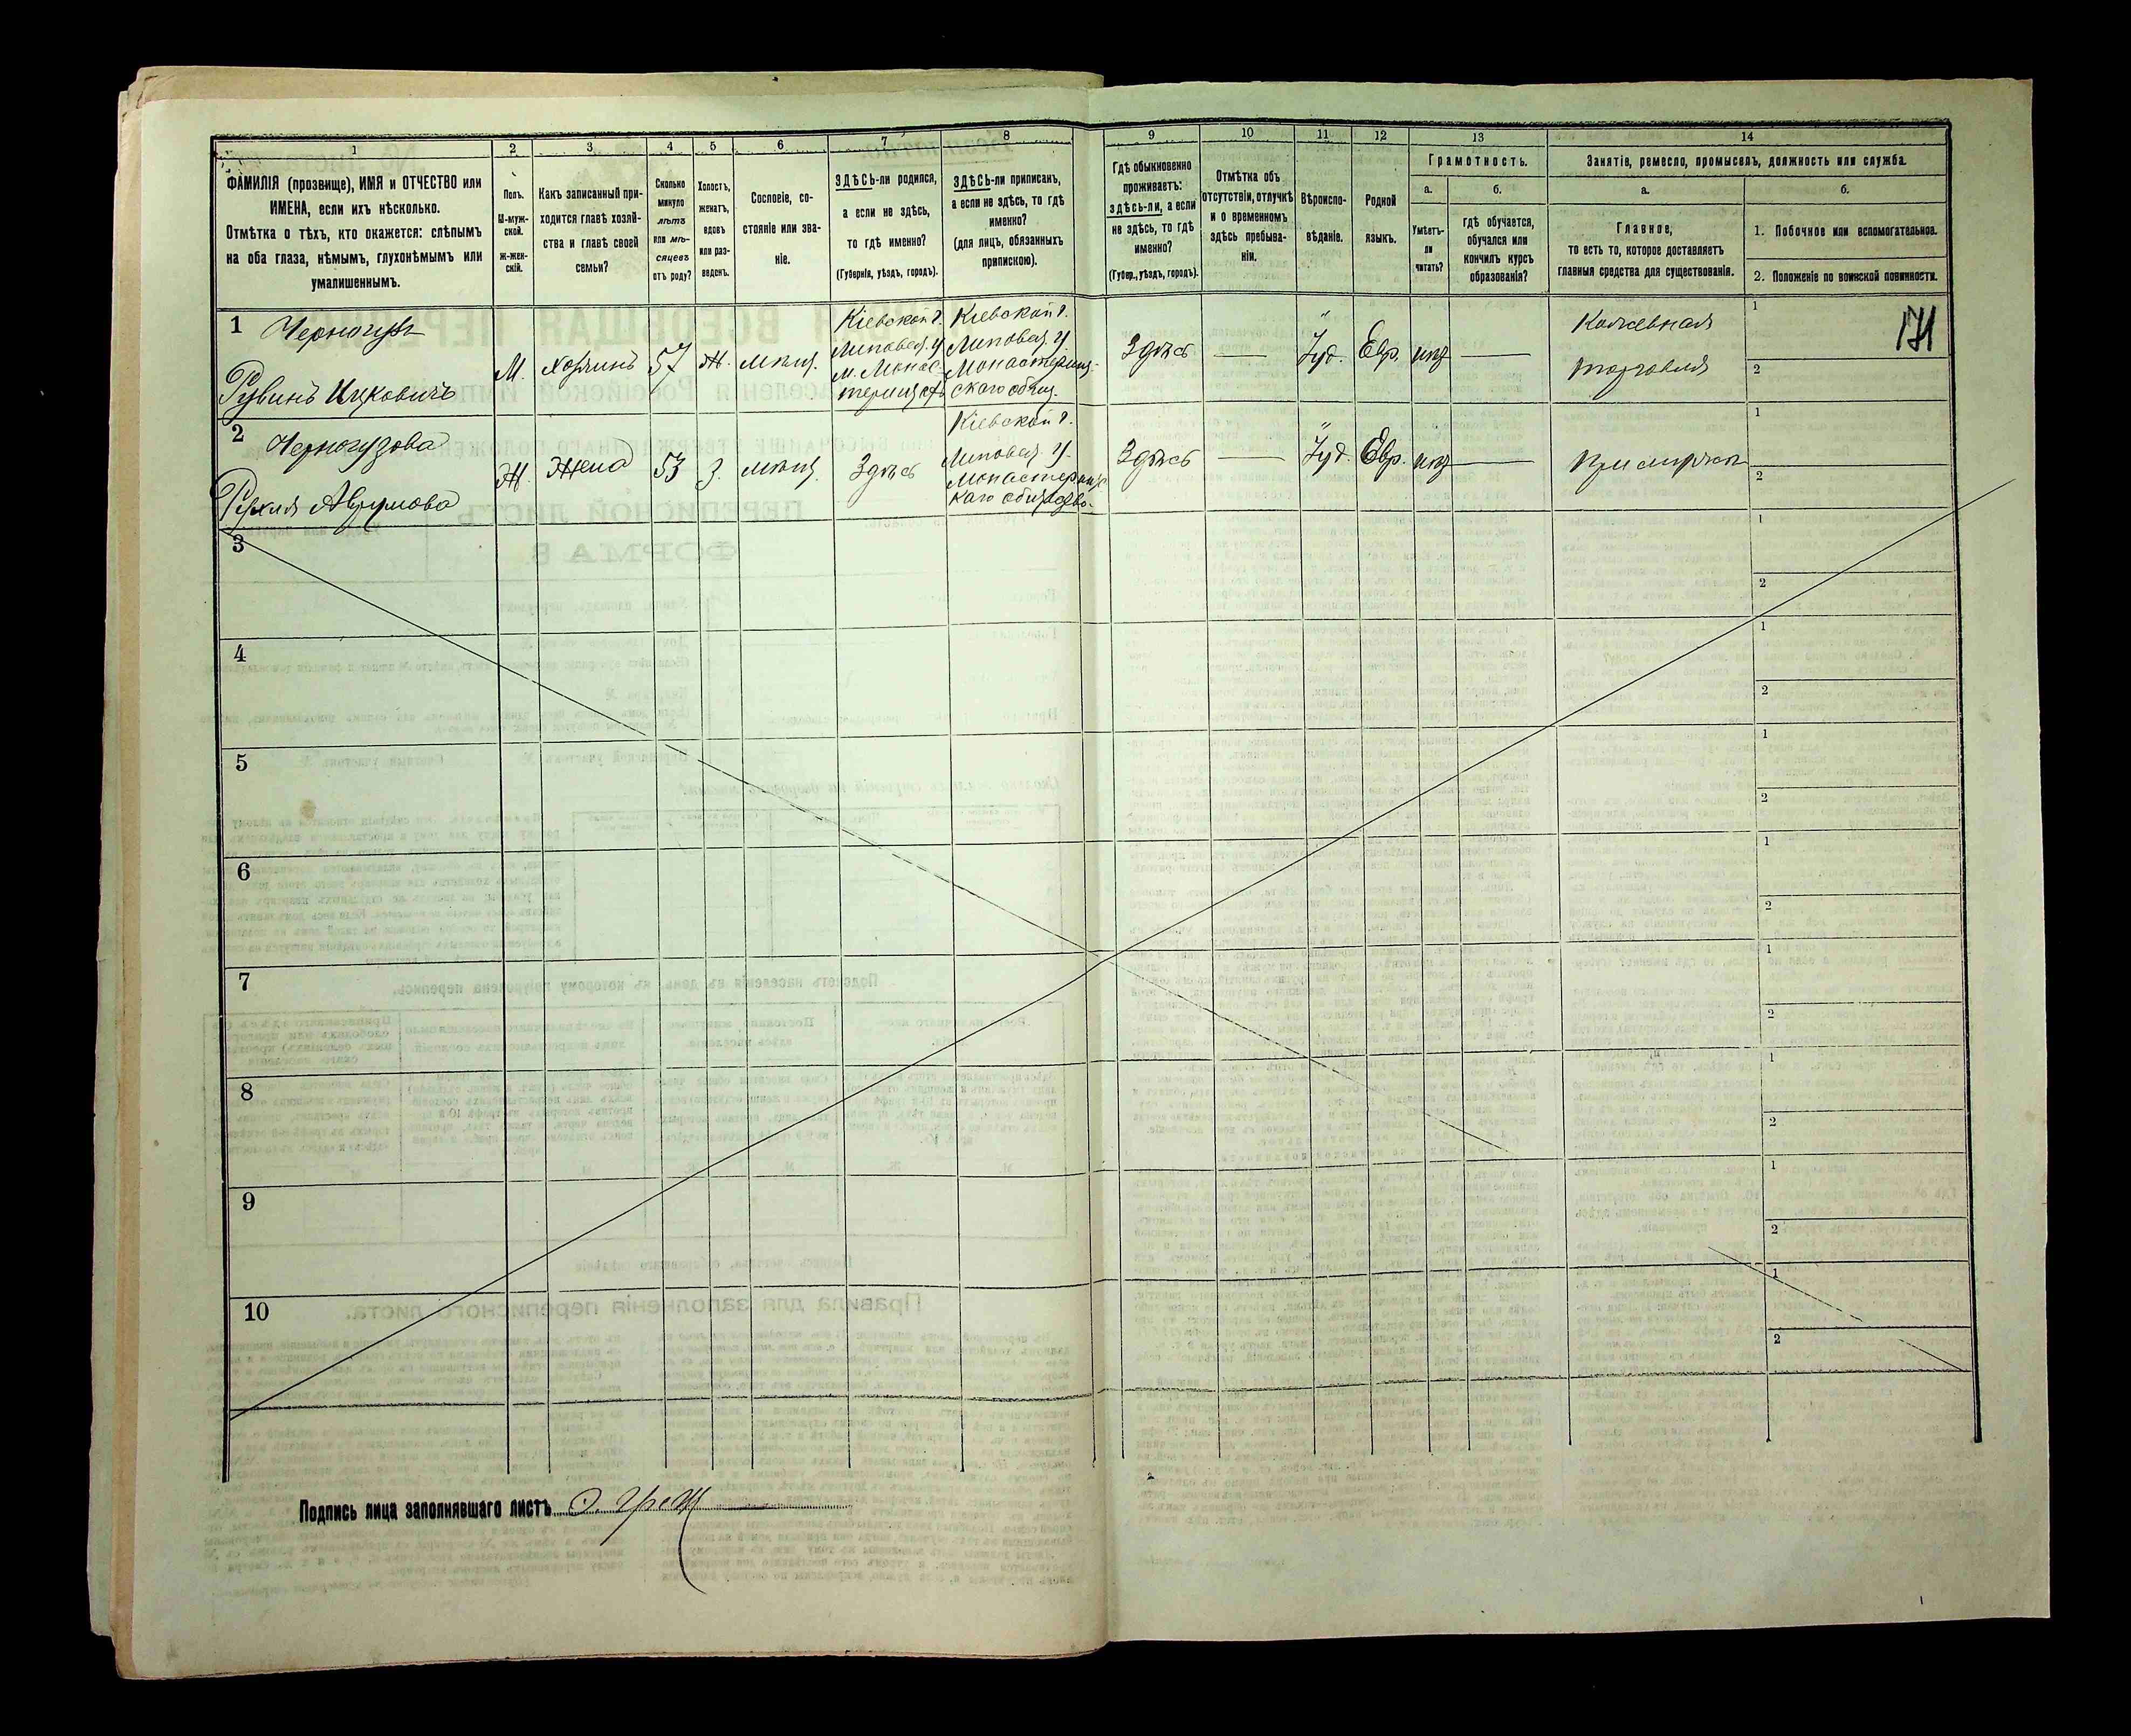 1 2 3 4 5 6 7 8 9 10 11 12 13 14
ФАМИЛІЯ (прозвище), ИМЯ и ОТЧЕСТВО или
ИМЕНА, если ихъ нѣсколько.
Отмѣтка о тѣхъ, кто окажется: слѣпымъ
на оба глаза, нѣмымъ, глухонѣмымъ или
умалишеннымъ.
Полъ.
М-муж-
ской.
Ж-жен-
скій.
Какъ записанный при-
ходится главѣ хозяй-
ства и главѣ своей
семьи?
Сколько
минуло
лѣтъ
или мѣ-
сяцевъ
отъ роду?
Холостъ,
женатъ,
вдовъ
или раз-
веденъ.
Сословіе, со-
стояніе или зва-
ніе.
ЗДѢСЬ-ли родился,
а если не здѣсь,
то гдѣ именно?
(Губернія, уѣздъ, городъ).
ЗДѢСЬ-ли приписанъ,
а если не здѣсь, то гдѣ
именно?
(для лицъ, обязанныхъ
припискою).
Гдѣ обыкновенно
проживаетъ:
здѣсь-ли, а если
не здѣсь, то гдѣ
именно?
(Губер., уѣздъ, городъ).
Отмѣтка объ
отсутствіи, отлучкѣ
и о временномъ
здѣсь пребыва-
ніи.
Вѣроиспо-
вѣданіе.
Родной
языкъ.
Грамотность.
а.
Умѣетъ-
ли
читать?
б.
Гдѣ обучается,
обучался или
кончилъ курсъ
образованія?
Занятіе, ремесло, промыселъ, должность или служба.
а.
Главное,
то есть то, которое доставляетъ
главныя средства для существованія.
б.
1. Побочное или вспомогательное.
2. Положеніе по воинской повинности.
1
Черногузъ
Рувинъ Ицковичъ
М.
Хозяинъ
57
Ж.
мѣщ.
Кіевской г.
Липовец. у
м. Монас-
Кіевской г.
Липовец. у.
Монастерищ-
скаго общ.
Здѣсь
Іуд.
Евр.
Кожевная
торговля
1
2
171
2
Черногузова
Рухля Аврумова
Ж.
Жена
53
З.
мѣщ.
Здѣсь
Кіевской г.
Липовец. у.
Здѣсь
Іуд.
Евр.
При мужѣ
1
2
3
1
2
4
1
2
5
1
2
6
1
2
7
1
2
8
1
2
9
1
2
10
1
2
Подпись лица заполнявшаго листъ